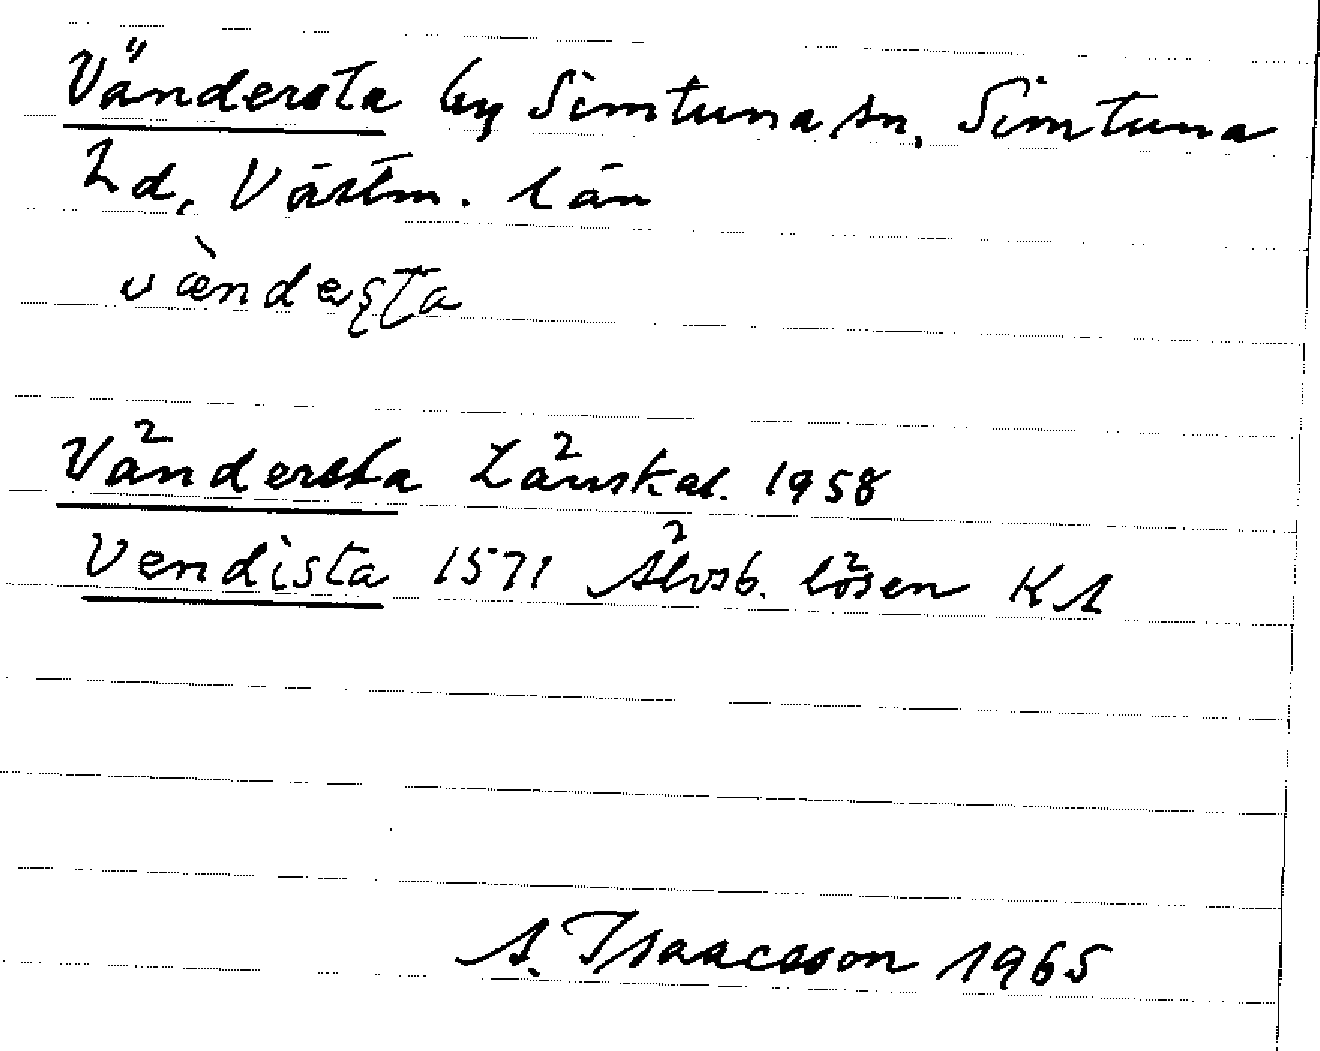 Vändersta by Simtuna sn, Simtuna
hd, Västm. län
vændesta
Vändersta Länskal. 1958
Vendista 1571 Älvsb. lösen KA
A. Isaacsson 1965